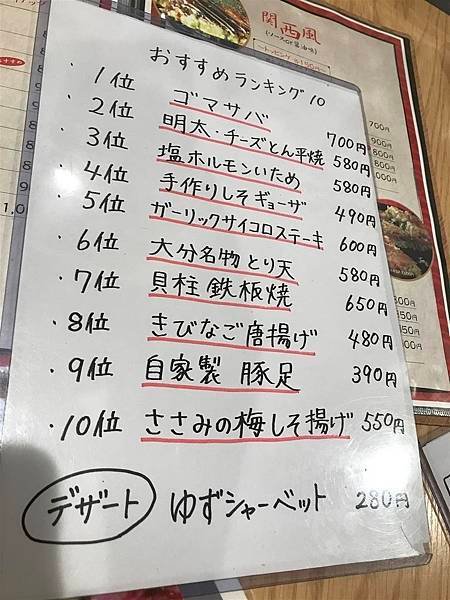 関西風
(ソースor醤油味)
おすすめランキング10
・1位 ゴマサバ 700円
・2位 明太・チーズとん平焼 580円
・3位 塩ホルモンいため 580円
・4位 手作りしそギョーザ 490円
・5位 ガーリックサイコロステーキ 600円
・6位 大分名物とり天 580円
・7位 貝柱鉄板焼 650円
・8位 きびなご唐揚げ 480円
・9位 自家製 豚足 390円
・10位 ささみの梅しそ揚げ 550円
デザート ゆずシャーベット 280円
700円